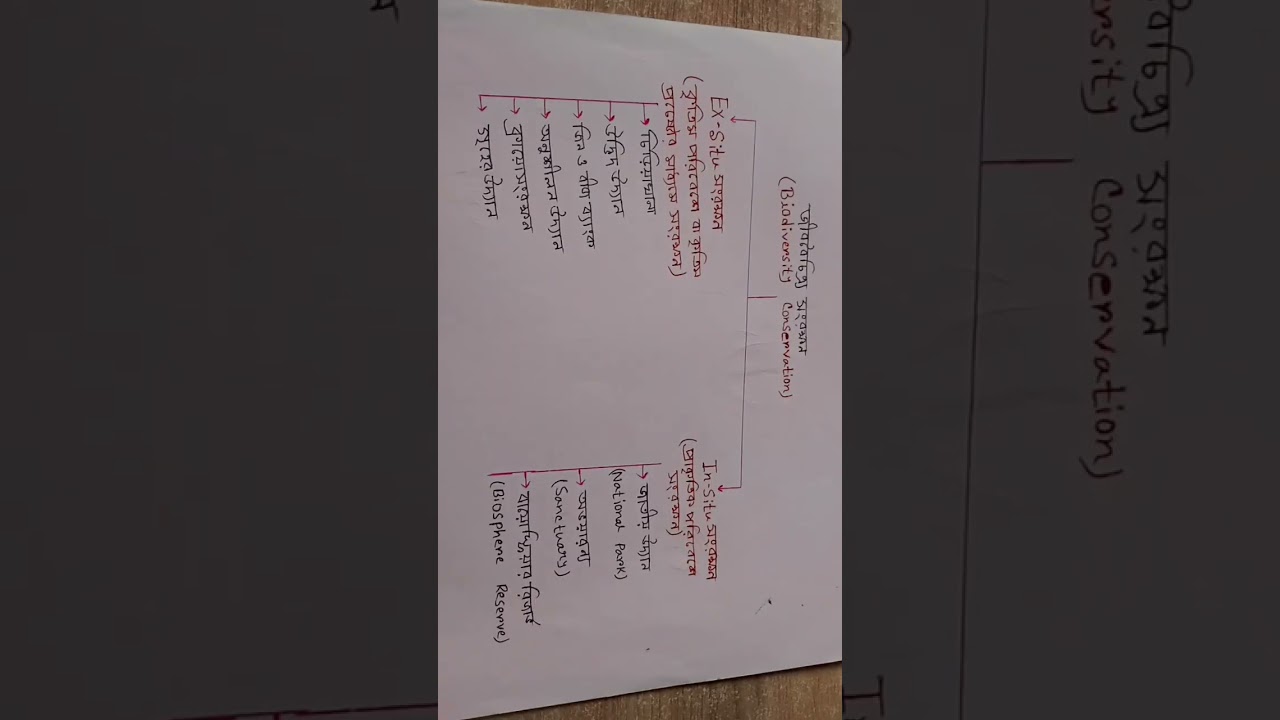 জীববৈচিত্র্য সংরক্ষণ
(Biodiversity Conservation)
Ex-Situ সংরক্ষণ
(কৃত্রিম পরিবেশে বা কৃত্রিম
প্রজননের মাধ্যমে সংরক্ষণ)
চিড়িয়াখানা
উদ্ভিদ উদ্যান
জিন ও বীজ ব্যাংক
অনুশীলন উদ্যান
ক্রায়োসংরক্ষণ
উদ্যান
In-Situ সংরক্ষণ
(প্রাকৃতিক পরিবেশে
সংরক্ষণ)
জাতীয় উদ্যান
(National Park)
অভয়ারণ্য
(Sanctuary)
বায়োস্ফিয়ার রিজার্ভ
(Biosphere Reserve)